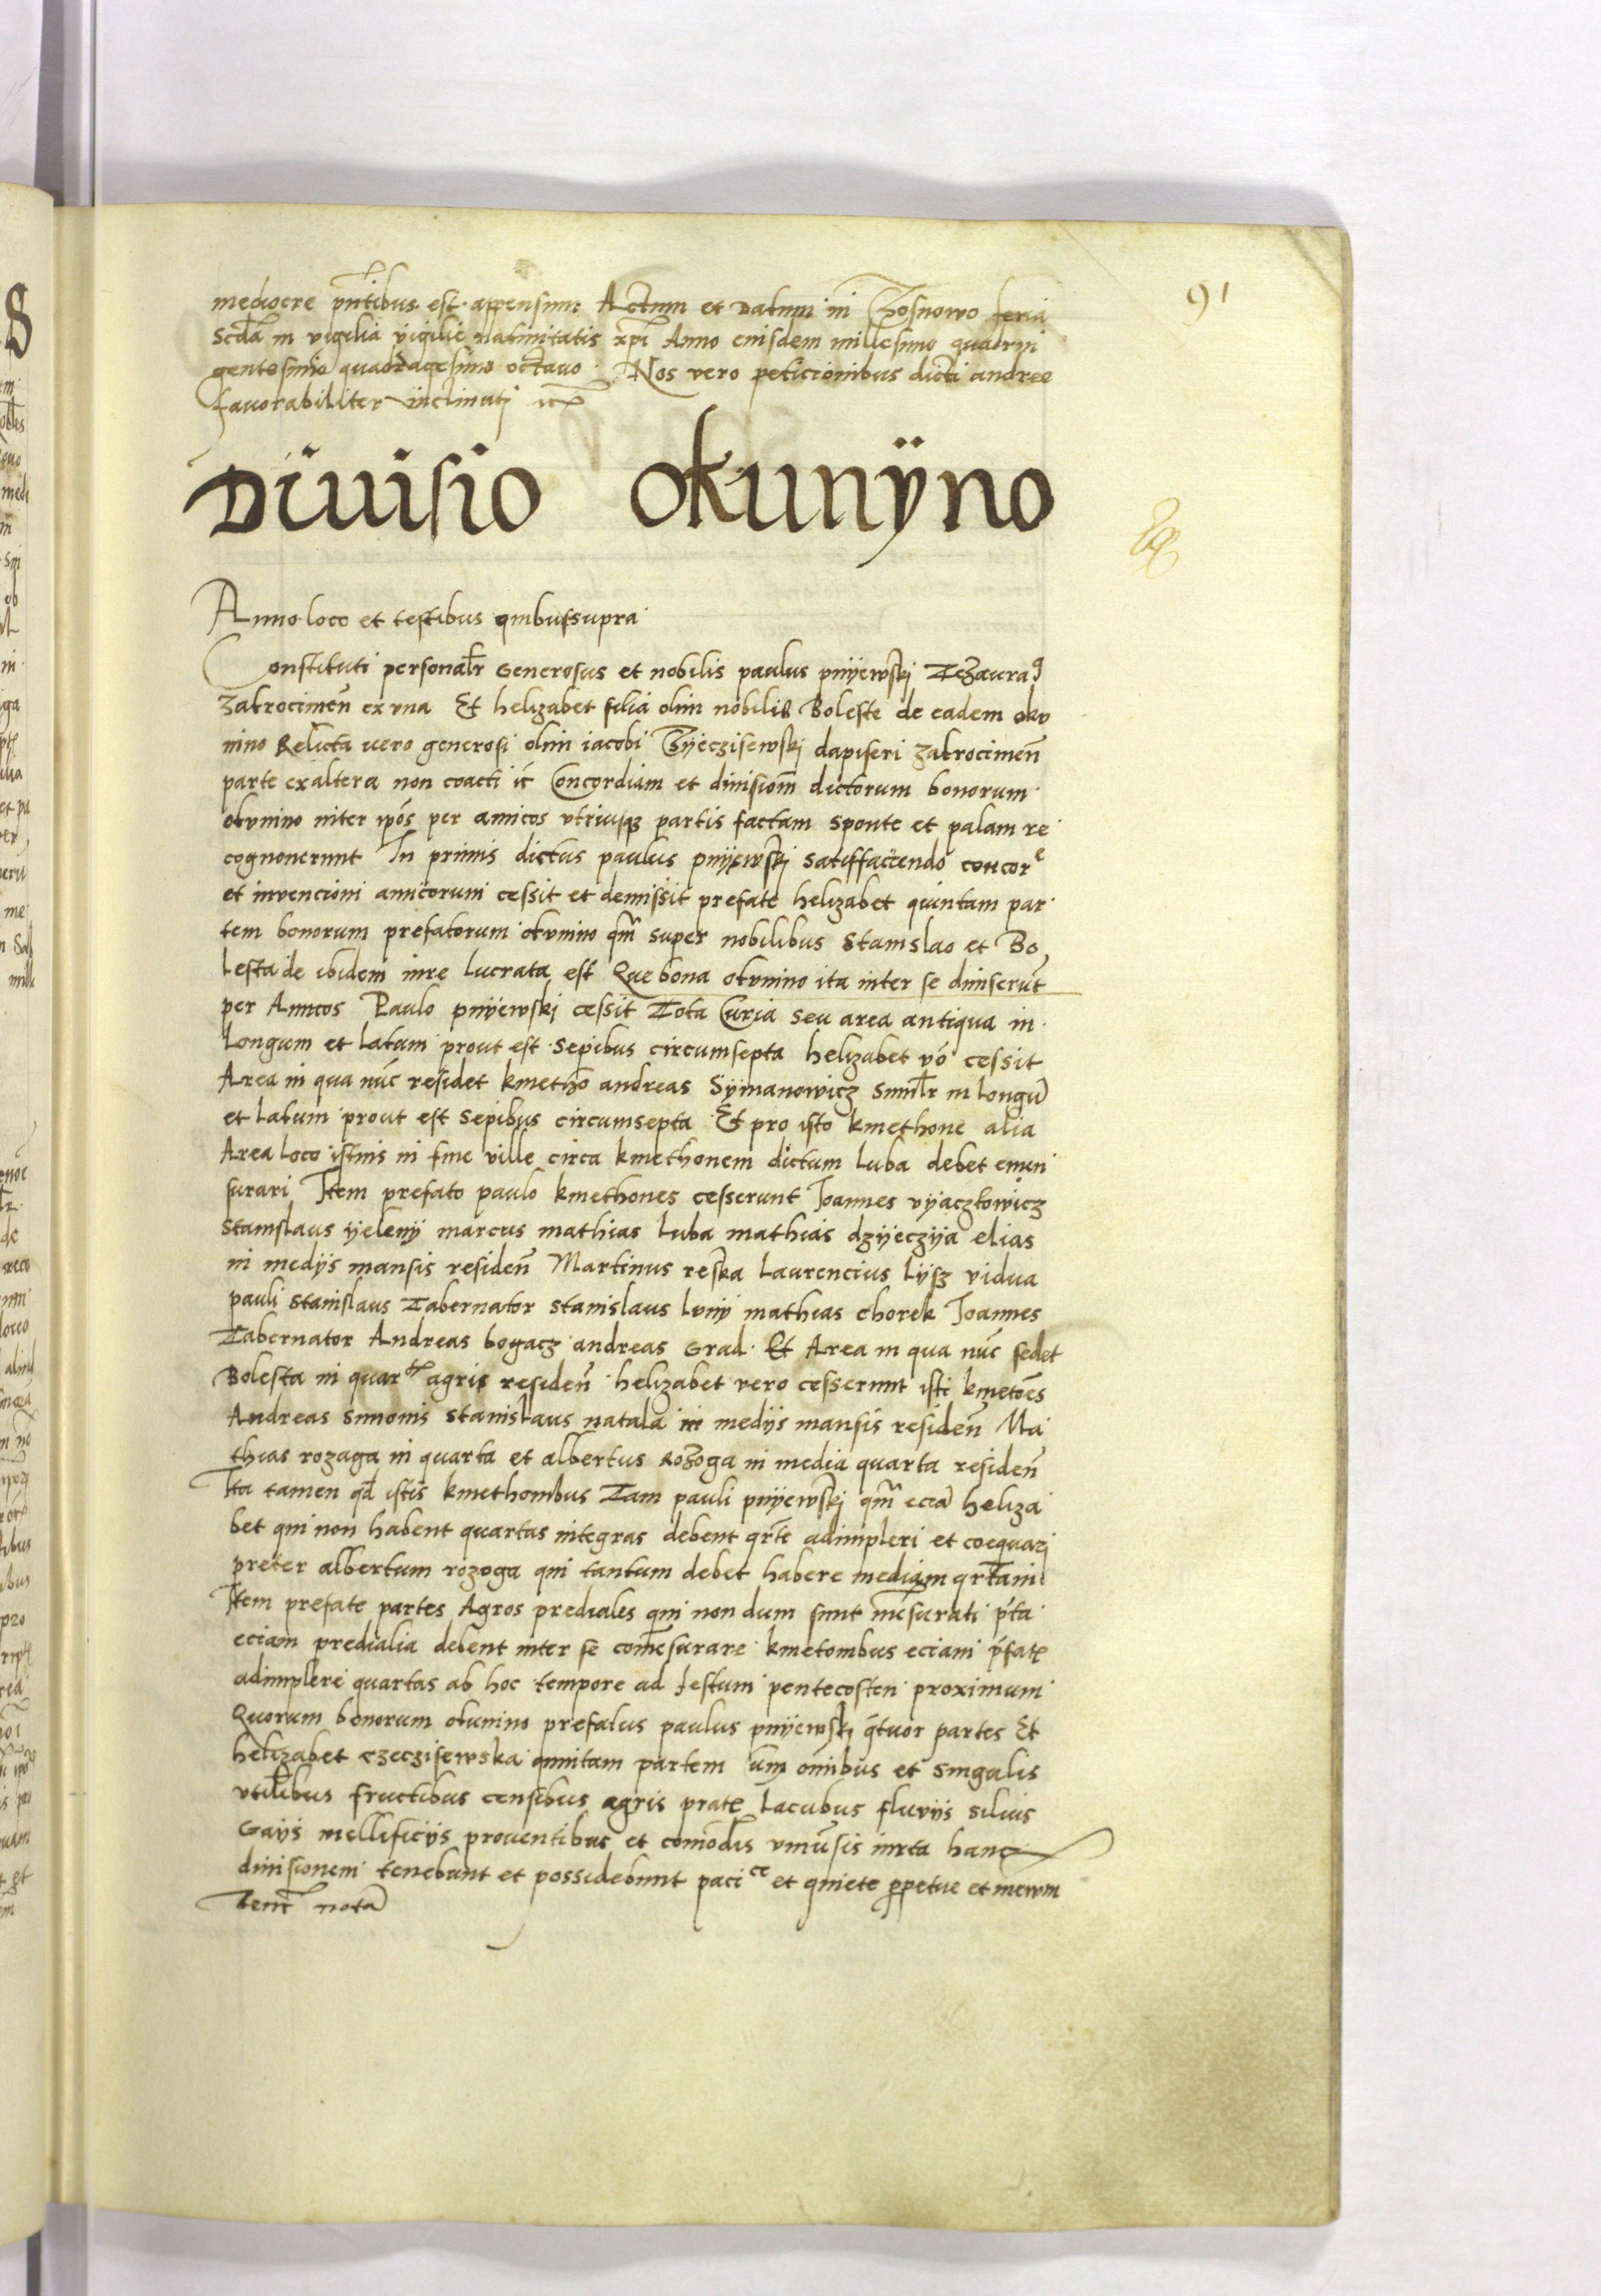 91
mediocre pn̄tibus est appensum Actum et Datum in Czosnowo feria
Scd̄a in vigilia vigilie natiuitatis xp̄i Anno eiusdem millesimo quadrin
gentesimo quadragesimo octauo Nos vero peticionibus dicti andree
fauorabiliter inclinati
Diuisio okunÿno
Anno loco et testibus quibus supra
Constituti personalr̄ Generosus et nobilis paulus pnÿewskj Tezaura9
Zakrocimen̄ ex vna Et helizabet filia olim nobilis Boleste de eadem oku
nino Relicta vero generosi olim iacobi Czÿeczisewskj dapiferi zakrocimen̄
parte ex altera non coacti ic̄ Concordiam et diuisiom̄ dictorum bonorum
okvnino inter ip̄os per amicos vtriusqȝ partis factam sponte et palam re
cognouerunt In primis dictus paulus pnÿewskj satisffaciendo concore
et invencioni amicorum cessit et demissit prefate helizabet quintam par
tem bonorum prefatorum okvnino qm̄ super nobilibus Stanislao et Bo
lesta de ibidem iure lucrata est Que bona okvnino ita inter se diuiserūt
per Amicos Paulo pnÿewskj cessit Tota Curia seu area antiqua in
longum et latum prout est sepibus circumsepta helizabet v̄o cessit
Area in qua nūc residet kmetho andreas Sÿmanowicz simlr̄ in longū
et latum prout est sepibus circumsepta Et pro isto kmethone alia
Area loco istius in fine ville circa kmethonem dictum luba debet emen
surari Item prefato paulo kmethones cesserunt Joannes vÿaczkowicz
Stanislaus ÿelenÿ marcus mathias luba mathias dzÿeczÿa elias
in medÿs mansis residen̄ Martinus reska laurencius lÿsz vidua
pauli Stanislaus Tabernator Stanislaus lvnÿ mathias chorek Joannes
Tabernator Andreas bogacz andreas Grad Et Area in qua nūc sedet
Bolesta in quar agris residen̄ helizabet vero cesserunt isti kmetōes
Andreas simonis Stanislaus natala in medÿs mansis residen̄ Ma
thias rozaga in quarta et albertus Rozoga in media quarta residen̄
Ita tamen qd̄ istis kmethonibus Tam pauli pnÿewskj qm̄ eciā heliza
bet qui non habent quartas integras debent qrt̄e adimpleri et coequarj
preter albertum rozoga qui tantum debet habere mediam qrt̄am
Item prefate partes Agros prediales qui non dum sunt mēsurati p̄ta
eciam predialia debent inter se com̄esurare kmetonibus eciam p̄fate
adimplere quartas ab hoc tempore ad festum pentecosten proximum
Quorum bonorum okunino prefatus paulus pnÿewskj q̄tuor partes Et
helizabet czeczisewska quintam partem Cum om̄ibus et singulis
vtilib̄us fructibus censibus agris prate lacubus fluvÿs siluis
Gaÿs mellificÿs prouentibus et comod̄is vniu͞sis iuxta hanc
diuisionem tenebunt et possidebunt pacice et quiete perpetue et inewm
Tenc̄ nota